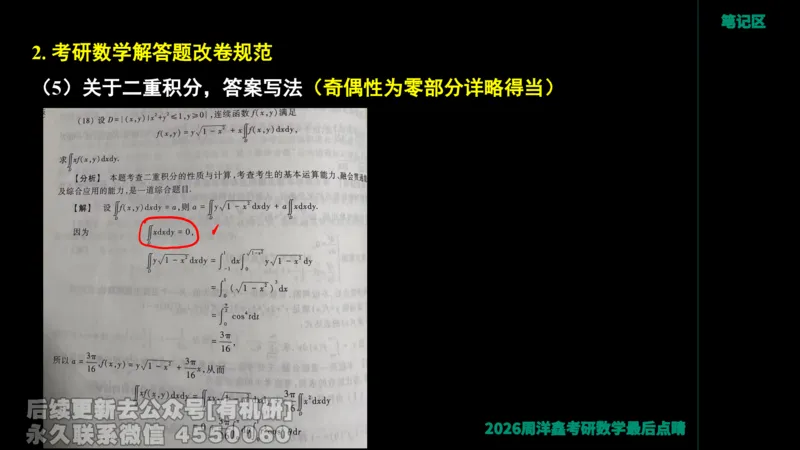 笔记区
2. 考研数学解答题改卷规范
（5）关于二重积分，答案写法（奇偶性为零部分详略得当）
(18) 设 D={(x,y)|x²+y²≤1,y≥0},连续函数 f(x,y)满足
f(x,y)=y√(1-x²)+x∬_D f(x,y)dxdy,
求∬_D xf(x,y)dxdy.
【分析】 本题考查二重积分的性质与计算,考查考生的基本运算能力、
及综合应用的能力,是一道综合题目.
【解】 设∬_D f(x,y)dxdy=a,则 a=∬_D y√(1-x²)dxdy+a∬_D xdxdy.
因为 ∬_D xdxdy=0,
∬_D y√(1-x²)dxdy=∫_{-1}^{1}dx∫_0^{√(1-x²)} y√(1-x²)dy
=∫_0^1(√(1-x²))³dx
=∫_0^{π/2}cos⁴tdt
=3π/16,
所以 a=3π/16, f(x,y)=y√(1-x²)+3π/16 x,从而
∬_D xf(x,y)dxdy=
后续更新去公众号[有机研]
永久联系微信 4550060
2026周洋鑫考研数学最后点睛